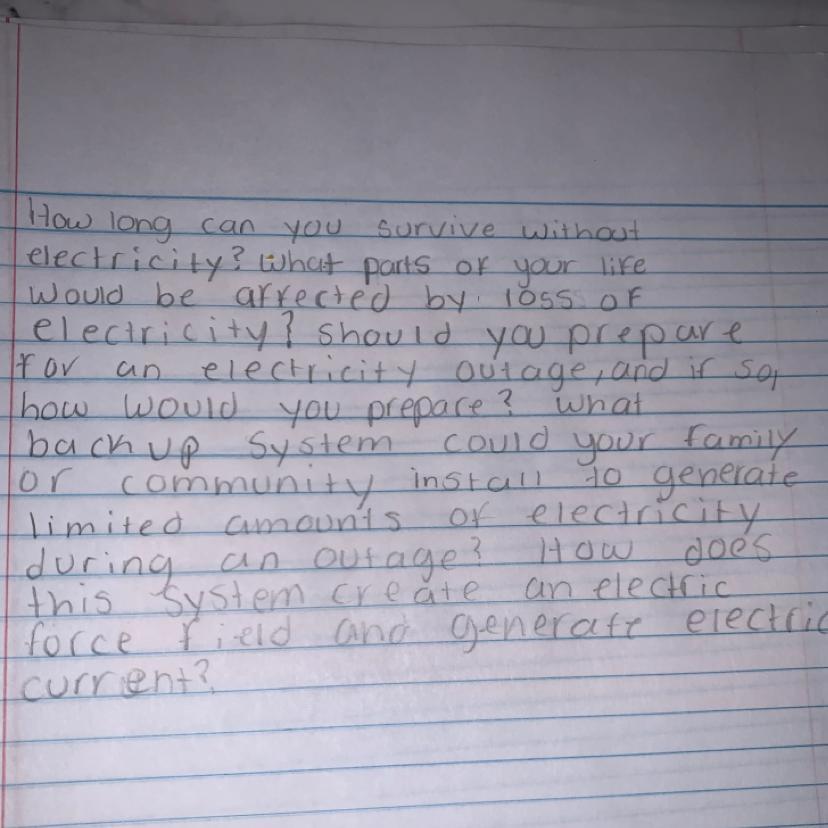 How long can you survive without
electricity? What parts of your life
would be affected by loss of
electricity? should you prepare
for an electricity outage, and if so,
how would you prepare? what
backup system could your family
or community install to generate
limited amounts of electricity
during an outage? How does
this system create an electric
force field and generate electric
current?